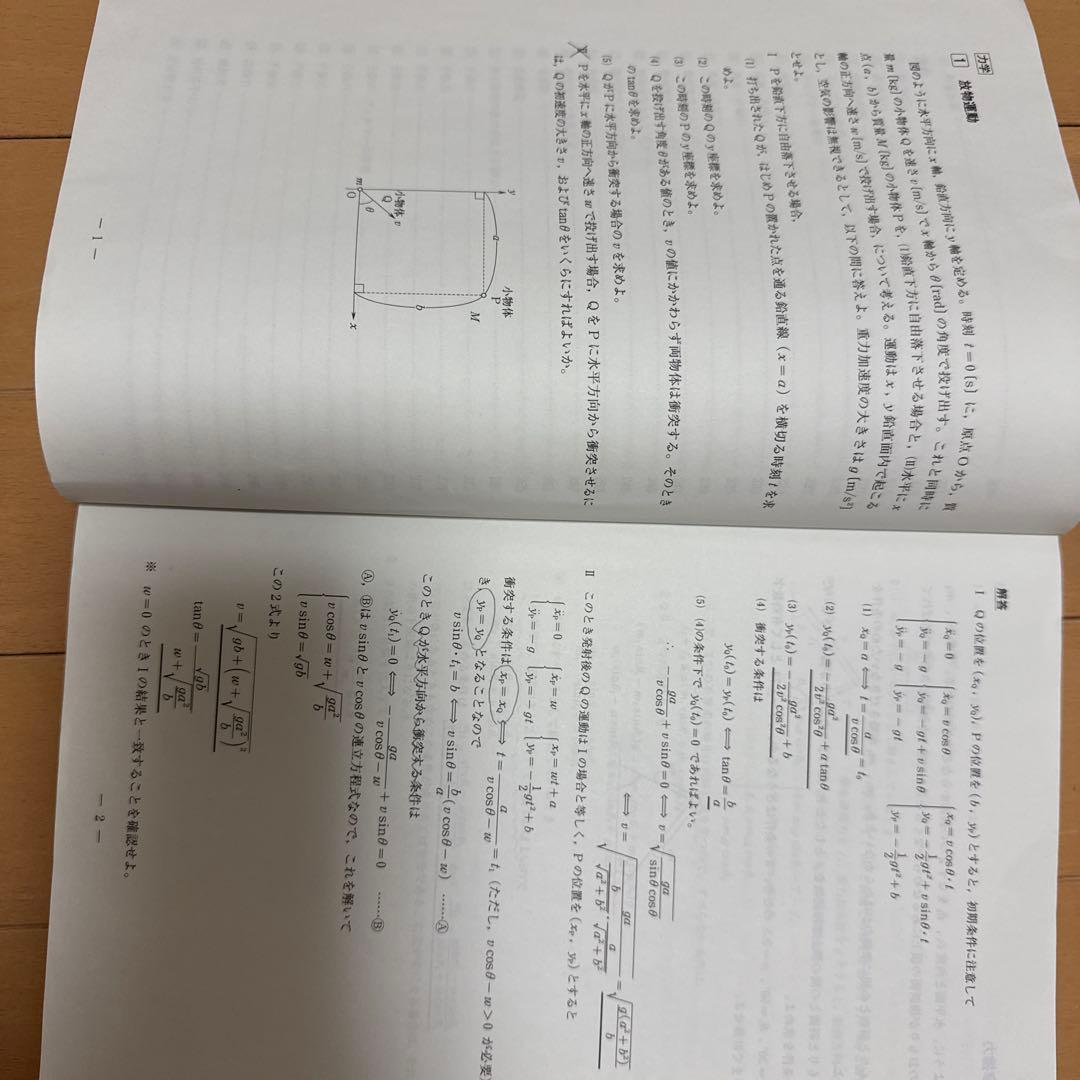 力学
1 放物運動
図のように水平方向にx軸,鉛直方向にy軸を定める。時刻 t=0〔s〕に,原点Oから,質
量m〔kg〕の小物体Qを速さv〔m/s〕でx軸からθ〔rad〕の角度で投げ出す。これと同時に
点(a, b)から質量M〔kg〕の小物体Pを,(I)鉛直下方に自由落下させる場合と,(II)水平にx
軸の正方向へ速さw〔m/s〕で投げ出す場合,について考える。運動はx,y鉛直面内で起こる
とし,空気の影響は無視できるとして,以下の問に答えよ。重力加速度の大きさはg〔m/s²〕
とせよ。
I Pを鉛直下方に自由落下させる場合,
(1) 打ち出されたQが,はじめPの置かれた点を通る鉛直線(x=a)を横切る時刻tを求
めよ。
(2) この時刻のQのy座標を求めよ。
(3) この時刻のPのy座標を求めよ。
(4) Qを投げ出す角度θがある値のとき,vの値にかかわらず両物体は衝突する。そのとき
のtanθを求めよ。
(5) QがPに水平方向から衝突する場合のvを求めよ。
Pを水平にx軸の正方向へ速さwで投げ出す場合,QをPに水平方向から衝突させるに
は,Qの初速度の大きさv,およびtanθをいくらにすればよいか。
y
a
小物体
P
M
b
小物体
Q
v
θ
m
O
x
— 1 —
解答
I Qの位置を(x_Q, y_Q),Pの位置を(b, y_P)とすると,初期条件に注意して
{ẍ_Q=0 {ẋ_Q=v cosθ {x_Q=v cosθ・t
ÿ_Q=−g ẏ_Q=−gt+v sinθ y_Q=−1/2 gt²+v sinθ・t
ÿ_P=−g ẏ_P=−gt y_P=−1/2 gt²+b
(1) x_Q=a ⟺ t=a/(v cosθ)=t₀
(2) y_Q(t₀)=−ga²/(2v²cos²θ)+a tanθ
(3) y_P(t₀)=−ga²/(2v²cos²θ)+b
(4) 衝突する条件は
y_Q(t₀)=y_P(t₀) ⟺ tanθ=b/a
(5) (4)の条件下で ẏ_Q(t₀)=0 であればよい。
∴ −ga/(v cosθ)+v sinθ=0 ⟺ v=√(ga/(sinθcosθ))
⟺ v=√(ga/(b/√(a²+b²)・a/√(a²+b²)))=√(g(a²+b²)/b)
II このとき発射後のQの運動はIの場合と等しく,Pの位置を(x_P, y_P)とすると
{ẍ_P=0 {ẋ_P=w {x_P=wt+a
ÿ_P=−g ẏ_P=−gt y_P=−1/2 gt²+b
衝突する条件は x_P=x_Q ⟺ t=a/(v cosθ−w)=t₁(ただし,v cosθ−w>0 が必要)
き y_P=y_Q となることなので
v sinθ・t₁=b ⟺ v sinθ=b/a(v cosθ−w) ……Ⓐ
このときQが水平方向から衝突する条件は
ẏ_Q(t₁)=0 ⟺ −ga/(v cosθ−w)+v sinθ=0 ……Ⓑ
Ⓐ,Ⓑはv sinθとv cosθの連立方程式なので,これを解いて
{v cosθ=w+√(ga²/b)
v sinθ=√gb
この2式より
v=√(gb+(w+√(ga²/b))²)
tanθ=√gb/(w+√(ga²/b))
※ w=0のときIの結果と一致することを確認せよ。
— 2 —